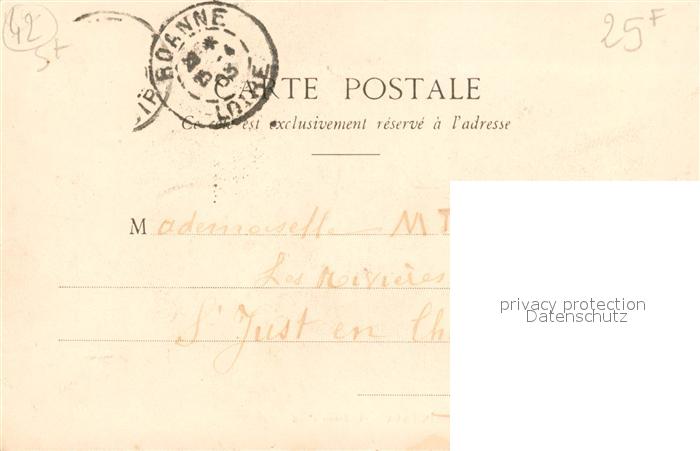 42
25F
5F
ROANNE
LOIRE
CARTE POSTALE
Ce côté est exclusivement réservé à l'adresse
Mademoiselle M
Les Rivières
St Just en Ch
privacy protection
Datenschutz